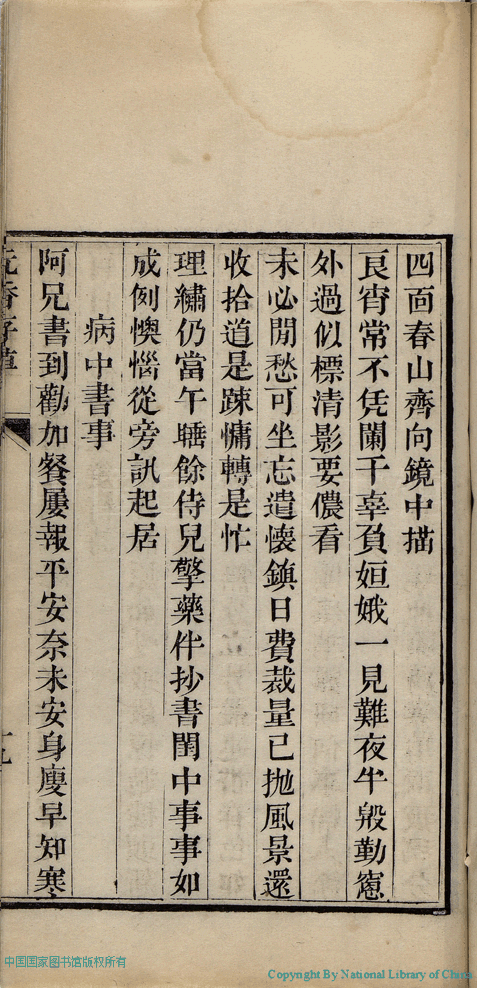 四面春山齊向鏡中描
良宵常不凭闌干辜負姮娥一見難夜半殷勤窻
外過似標清影要儂看
未必閒愁可坐忘遣懷鎮日費裁量已拋風景還
收拾道是踈慵轉是忙
理繡仍當午睡餘侍兒擎藥伴抄書閨中事事如
成例懊惱從旁訊起居
病中書事
阿兄書到勸加餐屢報平安奈未安身瘦早知寒
中国国家图书馆版权所有
Copyright By National Library of China